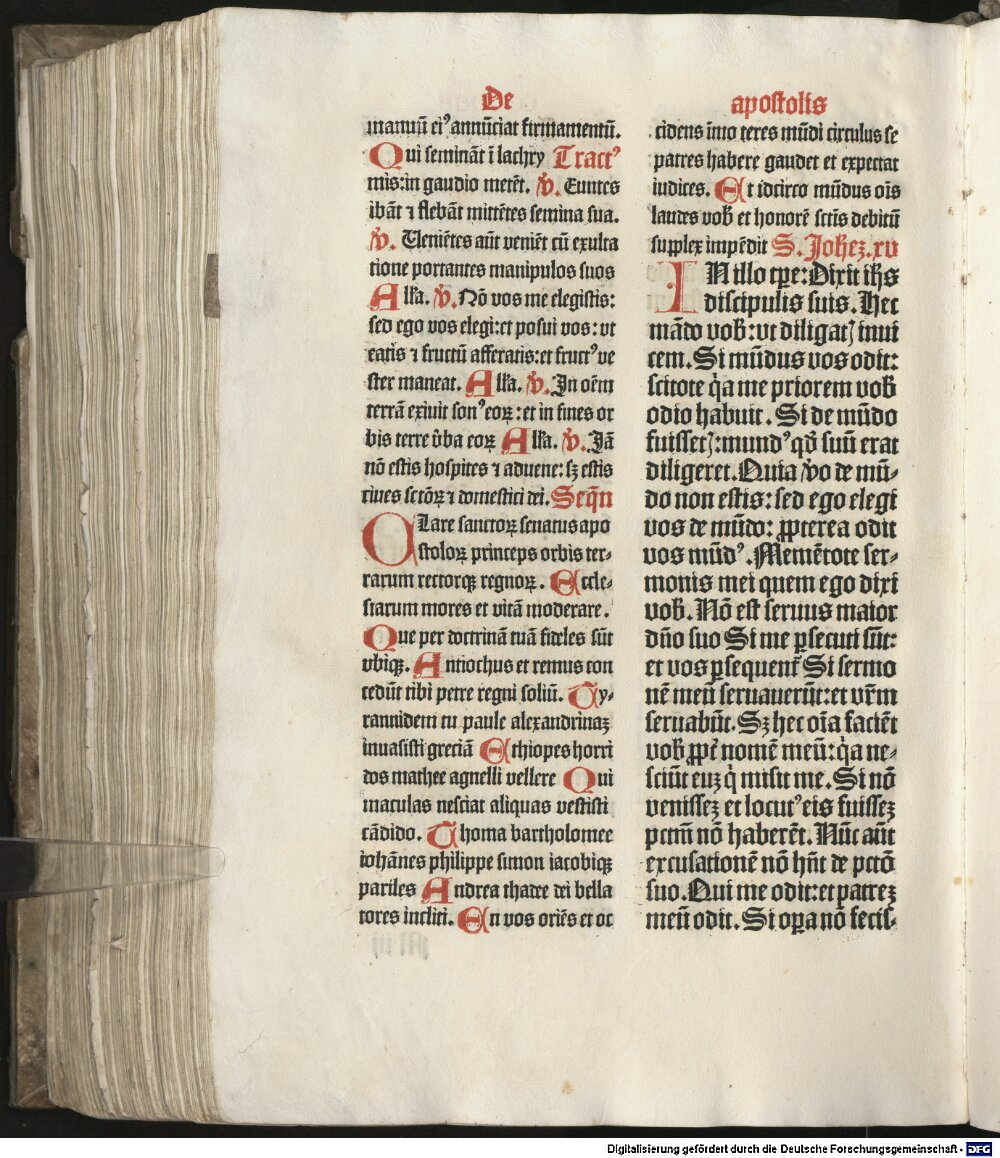 De
manuū ei⁹ annūciat firmamentū.
Qui semināt ī lachry Tract⁹
mis: in gaudio metēt. ꝟ. Euntes
ibāt ⁊ flebāt mittētes semina sua.
ꝟ. Ueniētes aūt veniēt cū exulta
tione portantes manipulos suos
Alľa. ꝟ. Nō vos me elegistis:
sed ego vos elegi: et posui vos: vt
eatis ⁊ fructū afferatis: et fruct⁹ ve
ster maneat. Alľa. ꝟ. In oēm
terrā exiuit son⁹ eoꝝ: et in fines or
bis terre v̄ba eoꝝ Alľa. ꝟ. Jā
nō estis hospites ⁊ aduene: sꝫ estis
ciues sctōꝝ ⁊ domestici dei. Seqūn
CLare sanctoꝝ senatus apo
stoloꝝ princeps orbis ter⸗
rarum rectorqꝫ regnoꝝ. Eccle⸗
siarum mores et vitā moderare.
Que per doctrinā tuā fideles sūt
vbiqꝫ. Antiochus et remus con
cedūt tibi petre regni soliū. Ty⸗
rannidem tu paule alexandrinaꝫ
inuasisti greciā Ethiopes horri
dos mathee agnelli vellere Qui
maculas nesciat aliquas vestisti
cādido. Thoma bartholomee
iohānes philippe simon iacobiqꝫ
pariles Andrea thadee dei bella
tores incliti. En vos oriēs et oc
apostolis
cidens īmo teres mūdi circulus se
patres habere gaudet et expectat
iudices. Et idcirco mūdus oīs
laudes vob̄ et honorē sctīs debitū
supplex impēdit S. Joheꝫ. xv
IN illo tꝑe: Dixit ihs̄
discipulis suis. Hec
mādo vob̄: vt diligatꝭ inui
cem. Si mūdus vos odit:
scitote qͥa me priorem vob̄
odio habuit. Si de mūdo
fuissetꝭ: mund⁹ qd̄ suū erat
diligeret. Quia ꝟo de mū⸗
do non estis: sed ego elegi
vos de mūdo: ꝓpterea odit
vos mūd⁹. Memētote ser⸗
monis mei quem ego dixi
vob̄. Nō est seruus maior
dn̄o suo Si me ꝑsecuti sūt:
et vos ꝑsequent᷑ Si sermo
nē meū seruauerūt: et vr̄m
seruabūt. Sꝫ hec oīa faciēt
vob̄ ꝓpt̄ nomē meū: qͥa ne⸗
sciūt euꝫ qͥ misit me. Si nō
venisseꝫ et locut⁹ eis fuisseꝫ
pctm̄ nō haberēt. Nūc aūt
excusationē nō hn̄t de pctō
suo. Qui me odit: et patreꝫ
meū odit. Si oꝑa nō fecis⸗
Digitalisierung gefördert durch die Deutsche Forschungsgemeinschaft - DFG